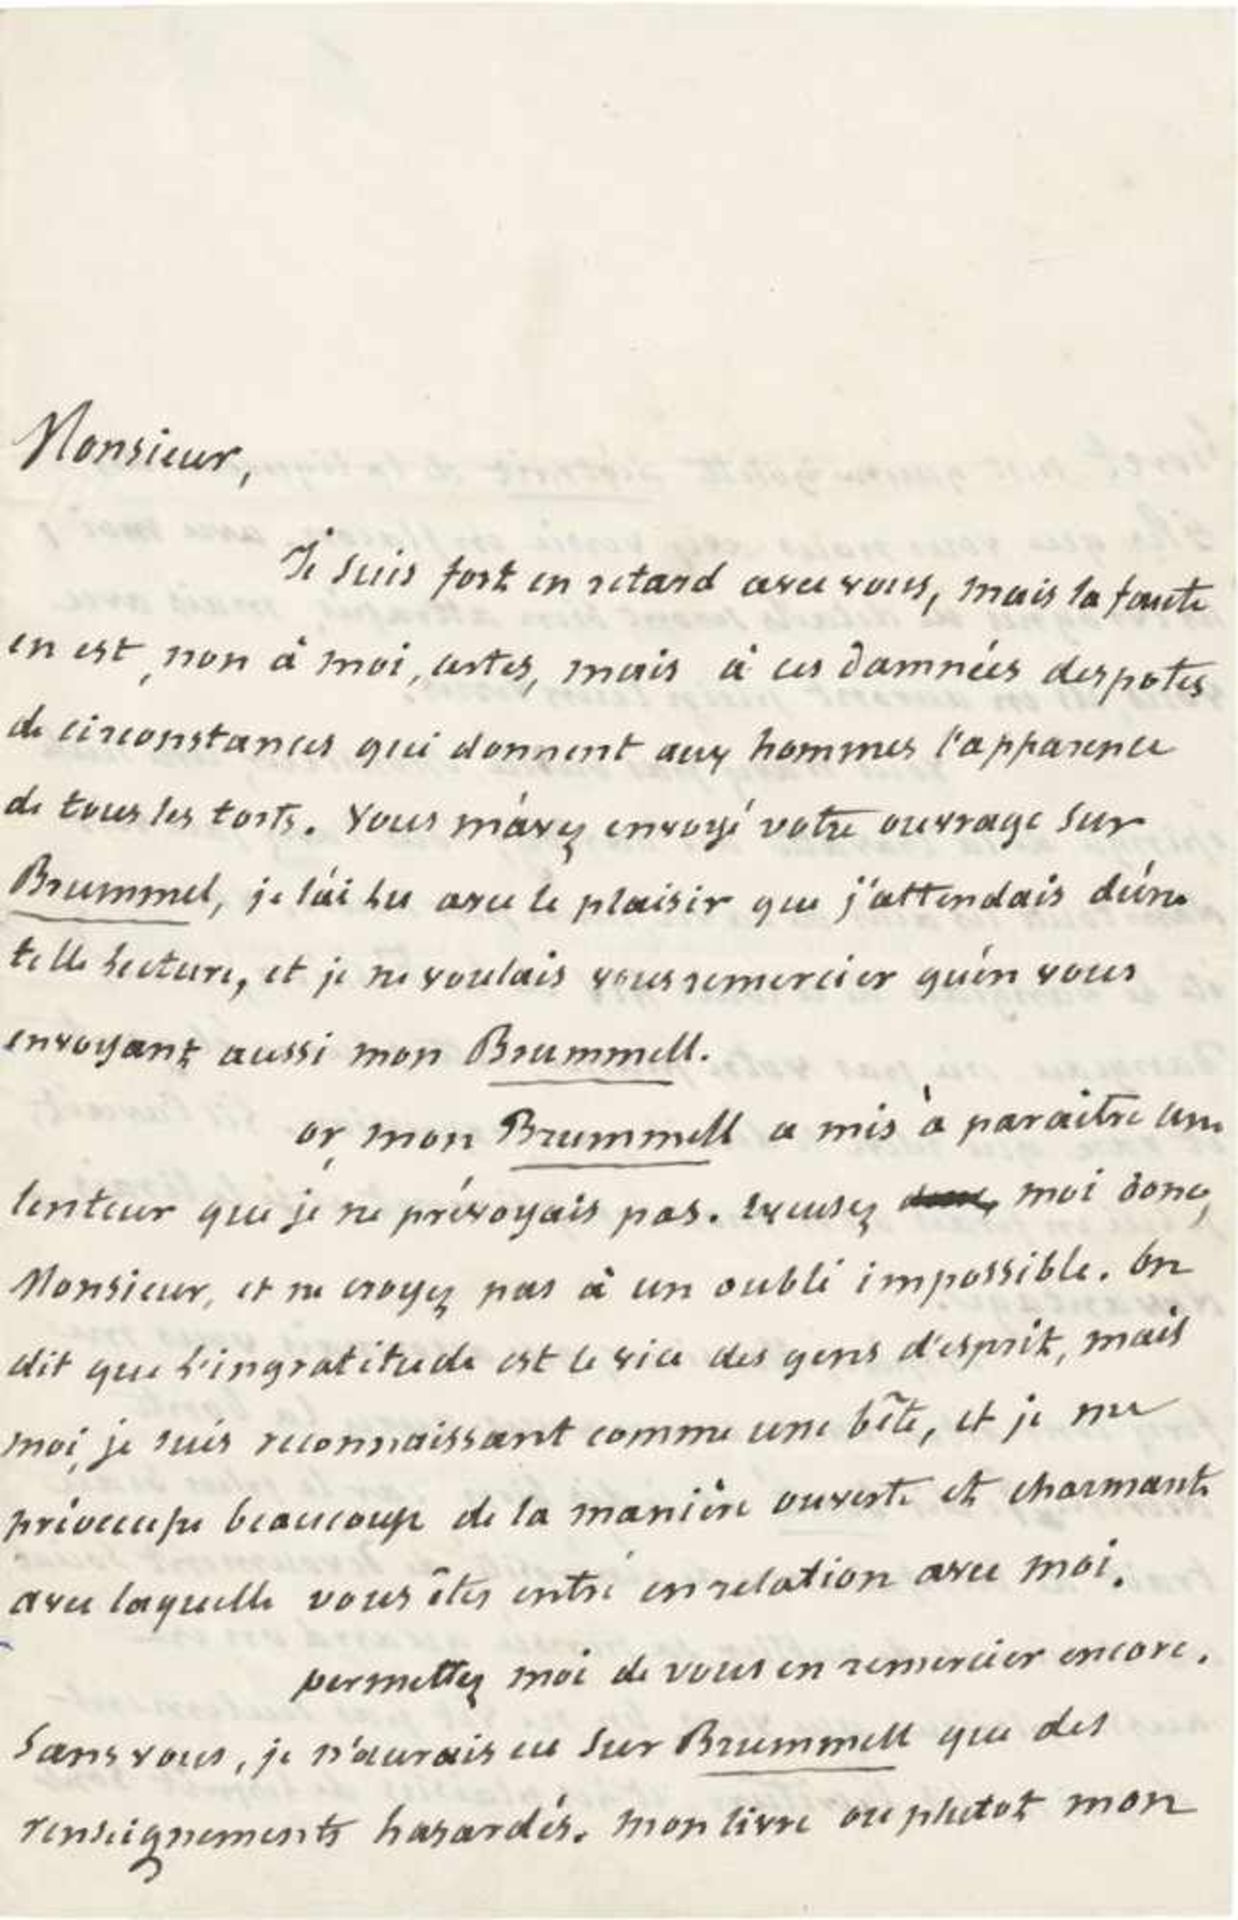 Monsieur,
Je suis fort en retard avec vous, mais la faute
en est, non à moi, certes, mais à ces damnées despotes
de circonstances qui donnent aux hommes l'apparence
de tous les torts. Vous m'avez envoyé votre ouvrage sur
Brummel, je l'ai lu avec le plaisir que j'attendais d'une
telle lecture, et je ne voulais vous remercier qu'en vous
envoyant aussi mon Brummell.
or, mon Brummell a mis à paraitre une
lenteur que je ne prévoyais pas. Excusez moi donc,
Monsieur, et ne croyez pas à un oubli impossible. On
dit que l'ingratitude est le vice des gens d'esprit, mais
moi, je suis reconnaissant comme une bête, et je me
préoccupe beaucoup de la manière ouverte et charmante
avec laquelle vous êtes entré en relation avec moi.
permettez moi de vous en remercier encore.
Sans vous, je n'aurais eu sur Brummell que des
renseignements hasardés. mon livre ou plutot mon